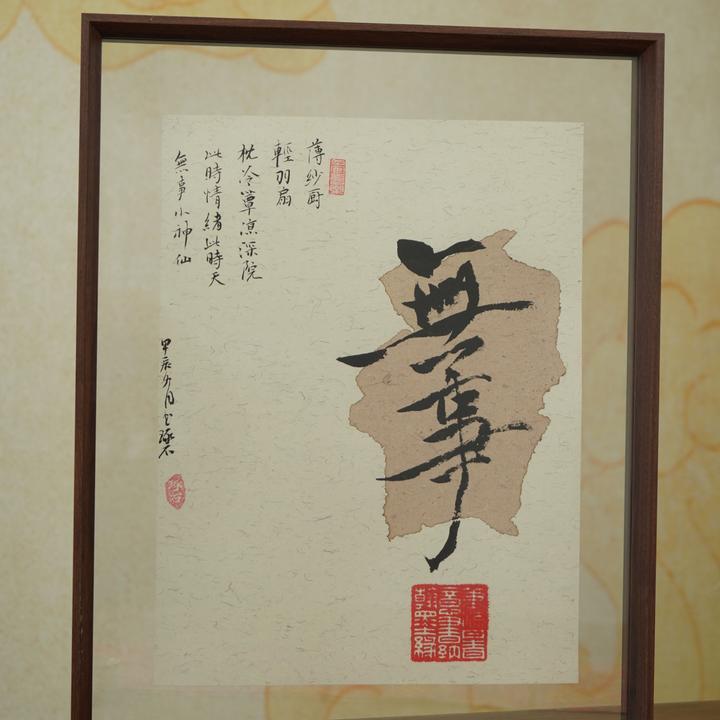 無事
薄紗厨
輕羽扇
枕冷簟涼深院
此時情緒此時天
無事小神仙
甲辰 月 琢石